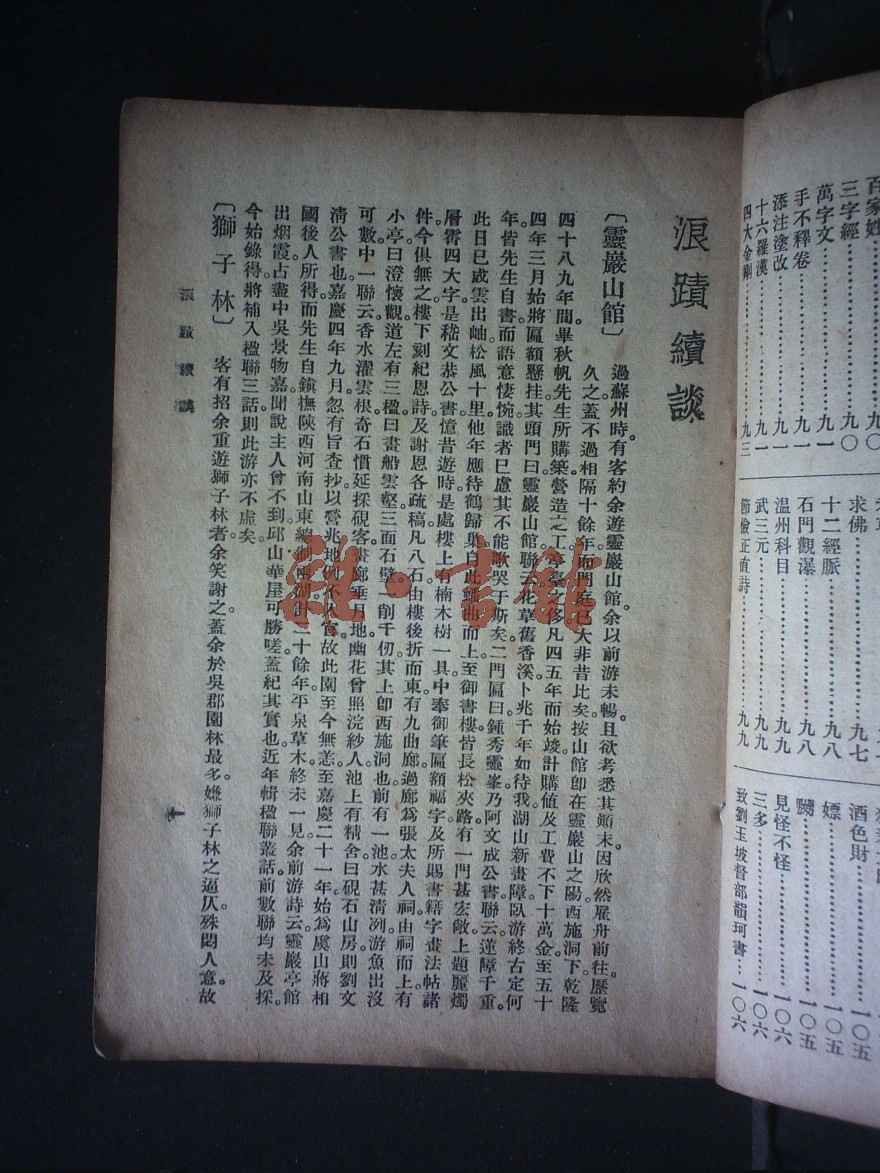 浪蹟續談
〔靈巖山館〕
過蘇州時。有客約余遊靈巖山館。余以前游未暢。且欲考悉其顛末。因欣然雇舟前往。歷覽
久之。蓋不過相隔十餘年。而門庭已大非昔比矣。按山館即在靈巖山之陽西施洞下。乾隆
四十八九年間。畢秋帆先生所購築。營造之工。亭臺之侈。凡四五年而始竣。計購値及工費不下十萬金。至五十
四年三月。始將匾額懸挂其頭門。曰靈巖山館。聯云。花草舊香溪。卜兆千年如待我。湖山新畫障。臥游終古定何
年。皆先生自書。而語意悽惋。識者已慮其不能歌哭于斯矣。二門匾曰鍾秀靈峯。乃阿文成公書。聯云。蓮障千重。
此日已成雲出岫。松風十里。他年應待鶴歸巢。自此蟠曲而上。至御書樓。皆長松夾路。有一門甚宏敞。上題麗燭
層霄四大字。是嵇文恭公書。憶昔遊時。是處樓上有楠木樹一具。中奉御筆匾額福字。及所賜書籍字畫法帖諸
件。今俱無之。樓下刻紀恩詩及謝恩各疏稿。凡八石。由樓後折而東。有九曲廊。過廊爲張太夫人祠。由祠而上。有
小亭曰澄懷觀道。左有三楹。曰畫船雲壑。三面石壁。一削千仞。其上卽西施洞也。前有一池。水甚淸洌。游魚出沒
可數。中一聯云。香水濯雲根。奇石慣延採硯客。畫廊垂月地。幽花曾照浣紗人。池上有精舍。曰硯石山房。則劉文
淸公書也。嘉慶四年九月。忽有旨查抄。以營兆地例不入官。故此園至今無恙。至嘉慶二十一年。始爲虞山蔣相
國後人所得。而先生自鎭撫陝西河南山東。總制兩湖。計二十餘年。平泉草木。終未一見。余前游詩云。靈巖亭館
出烟霞。占盡中吳景物嘉。聞說主人曾不到。邱山華屋可勝嗟。蓋紀其實也。近年輯楹聯叢話。前數聯均未及採。
今始錄得。將補入楹聯三話。則此游亦不虛矣。
〔獅子林〕 客有招余重遊獅子林者。余笑謝之。蓋余於吳郡園林最多。嫌獅子林之逼仄。殊悶人意。故
浪蹟續談
一
百家姓…九〇
三字經…九〇
萬字文…九一
手不釋卷…九一
添注塗改…九一
十六羅漢…九一
四大金剛…九三
求佛…九七
十二經脈…九八
石門觀瀑…九八
溫州科目…九九
武三元…九九
節儉正直詩…九九
酒色財…一〇五
嫖…一〇五
嬲…一〇五
見怪不怪…一〇六
三多…一〇六
致劉玉坡督部韻珂書…一〇六